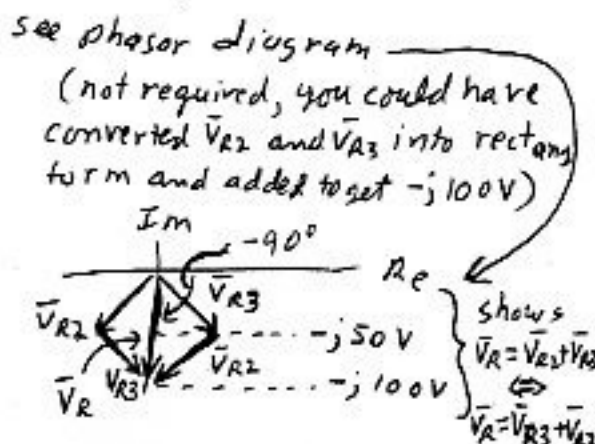 see phasor diagram
(not required, you could have
converted V̄R2 and V̄R3 into rectang
form and added to get -j100V)
Im
-90°
Re
V̄R2
V̄R3
-j50V
V̄R2
V̄R
VR3
-j100V
shows
V̄R = V̄R2 + V̄R3
⇔
V̄R = V̄R3 + V̄R2